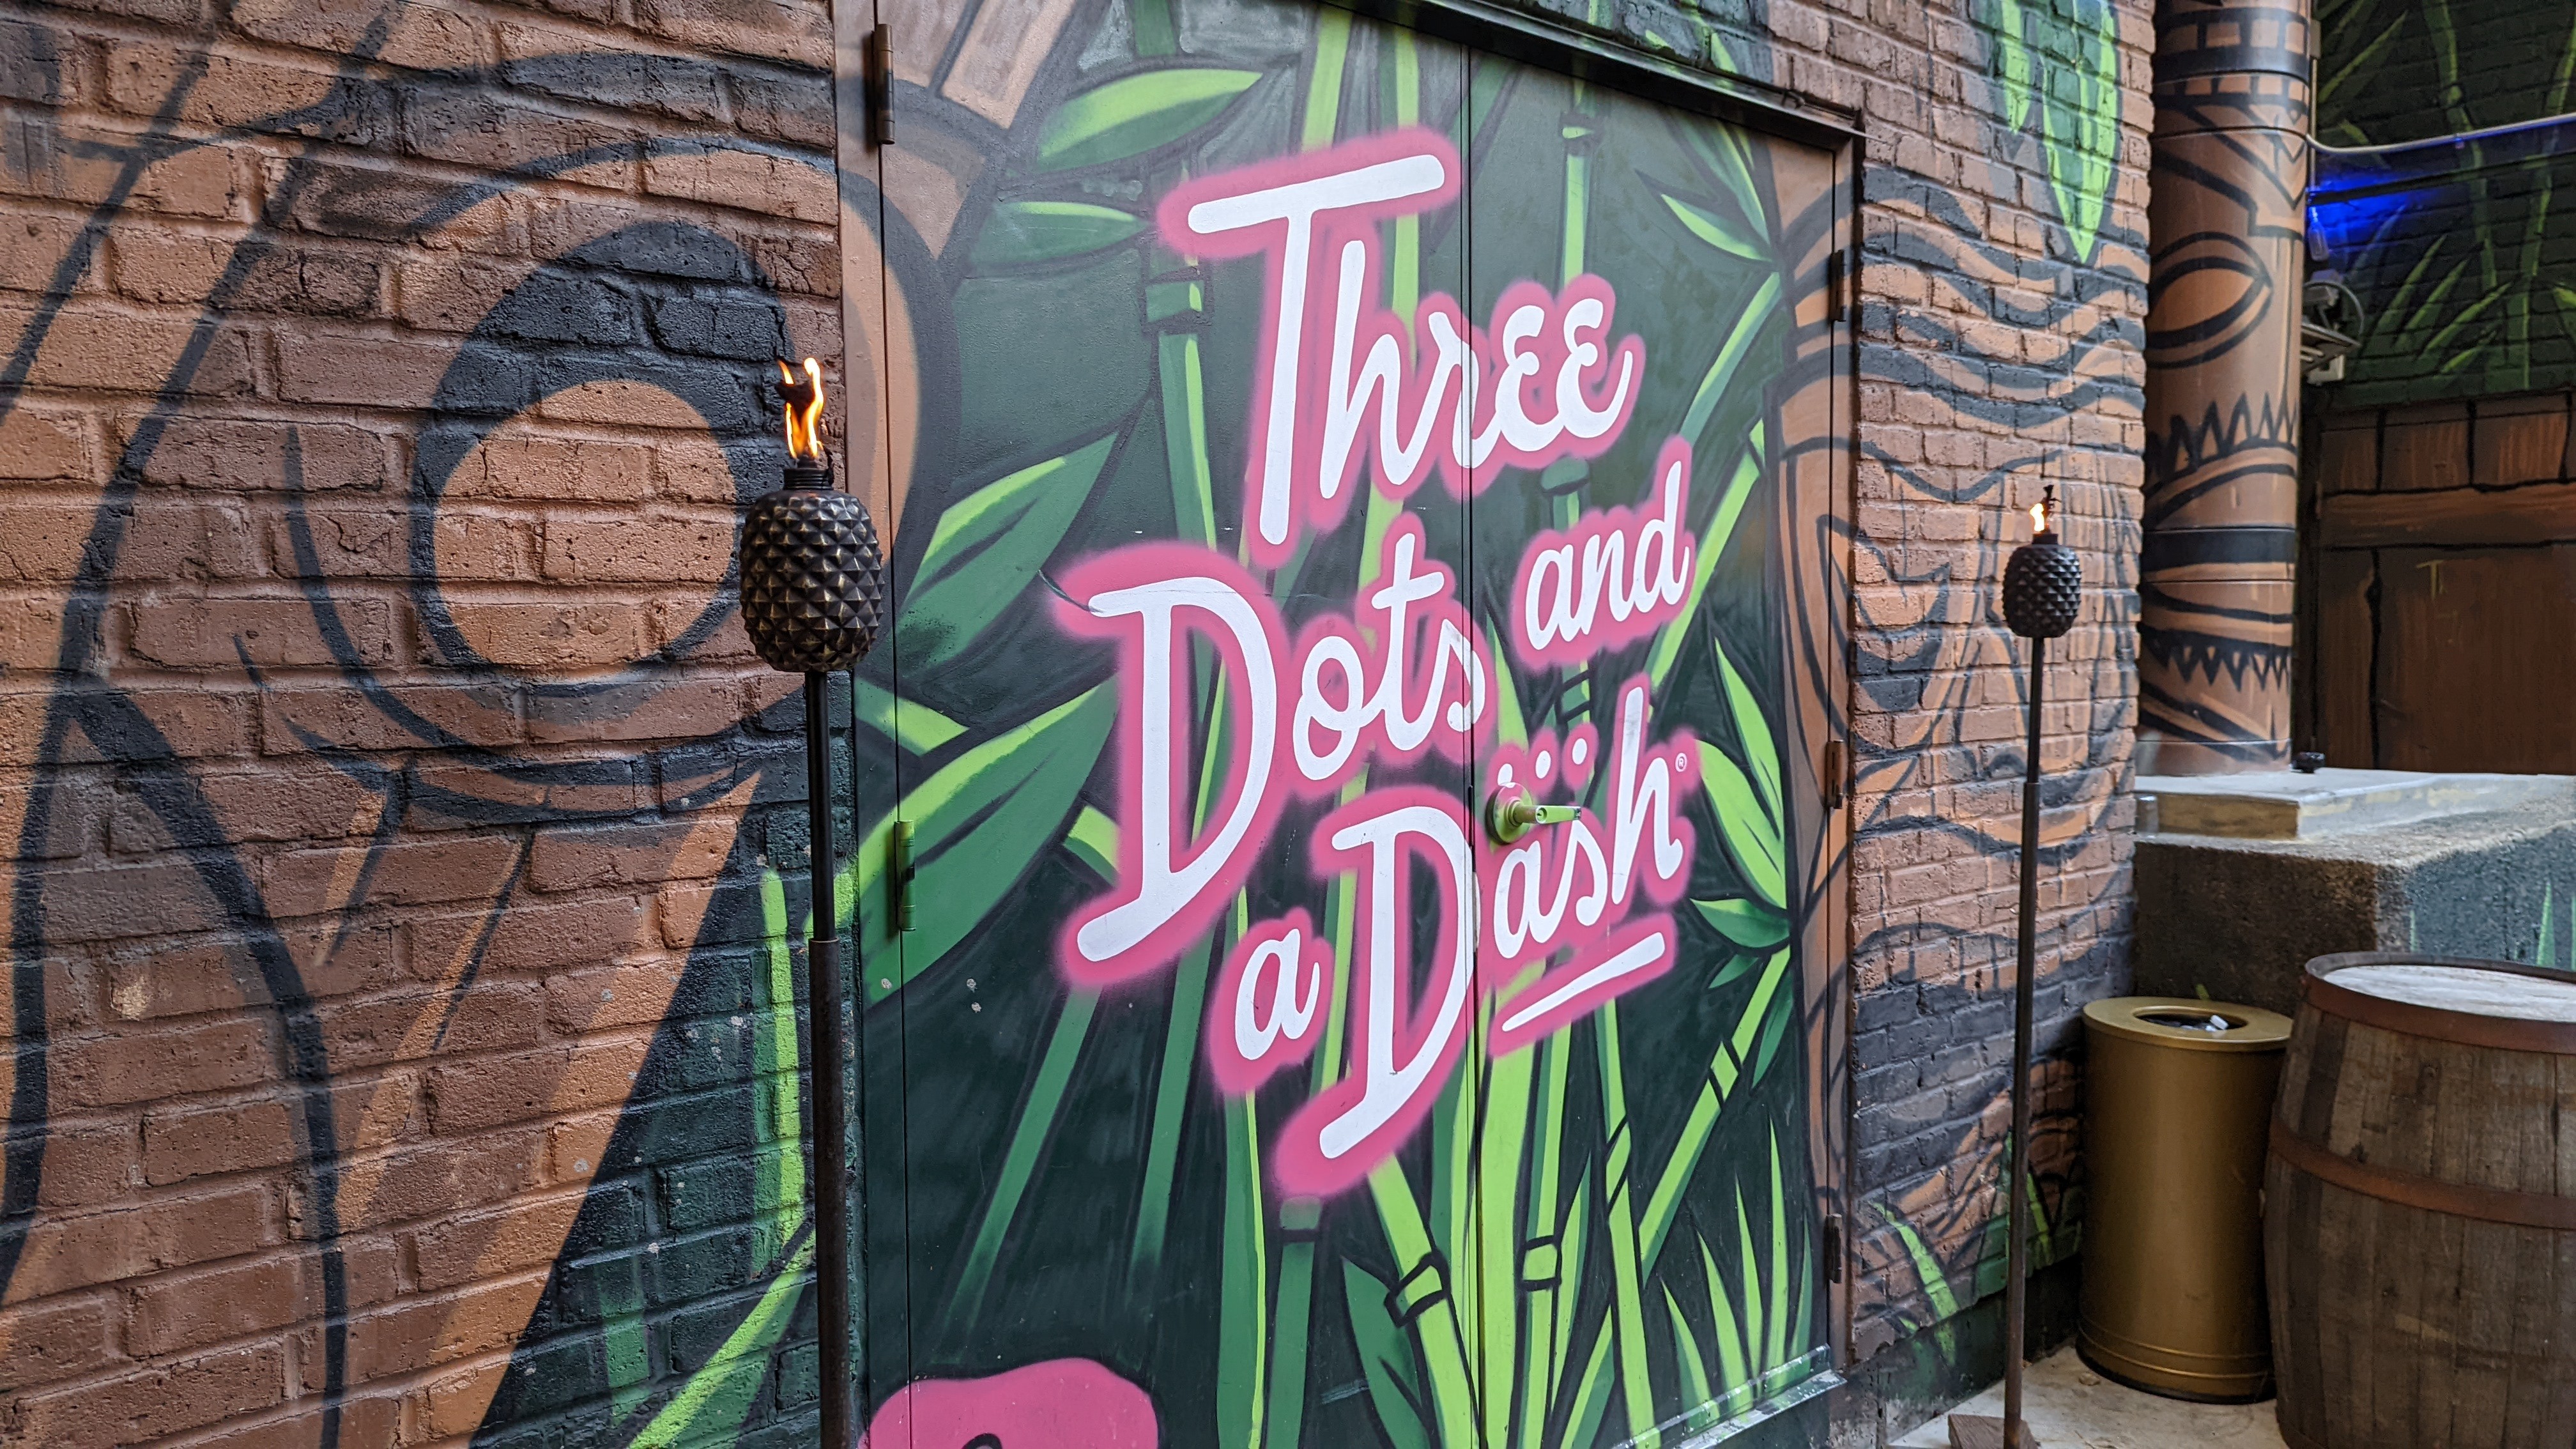 Three
Dots and
a Dash®